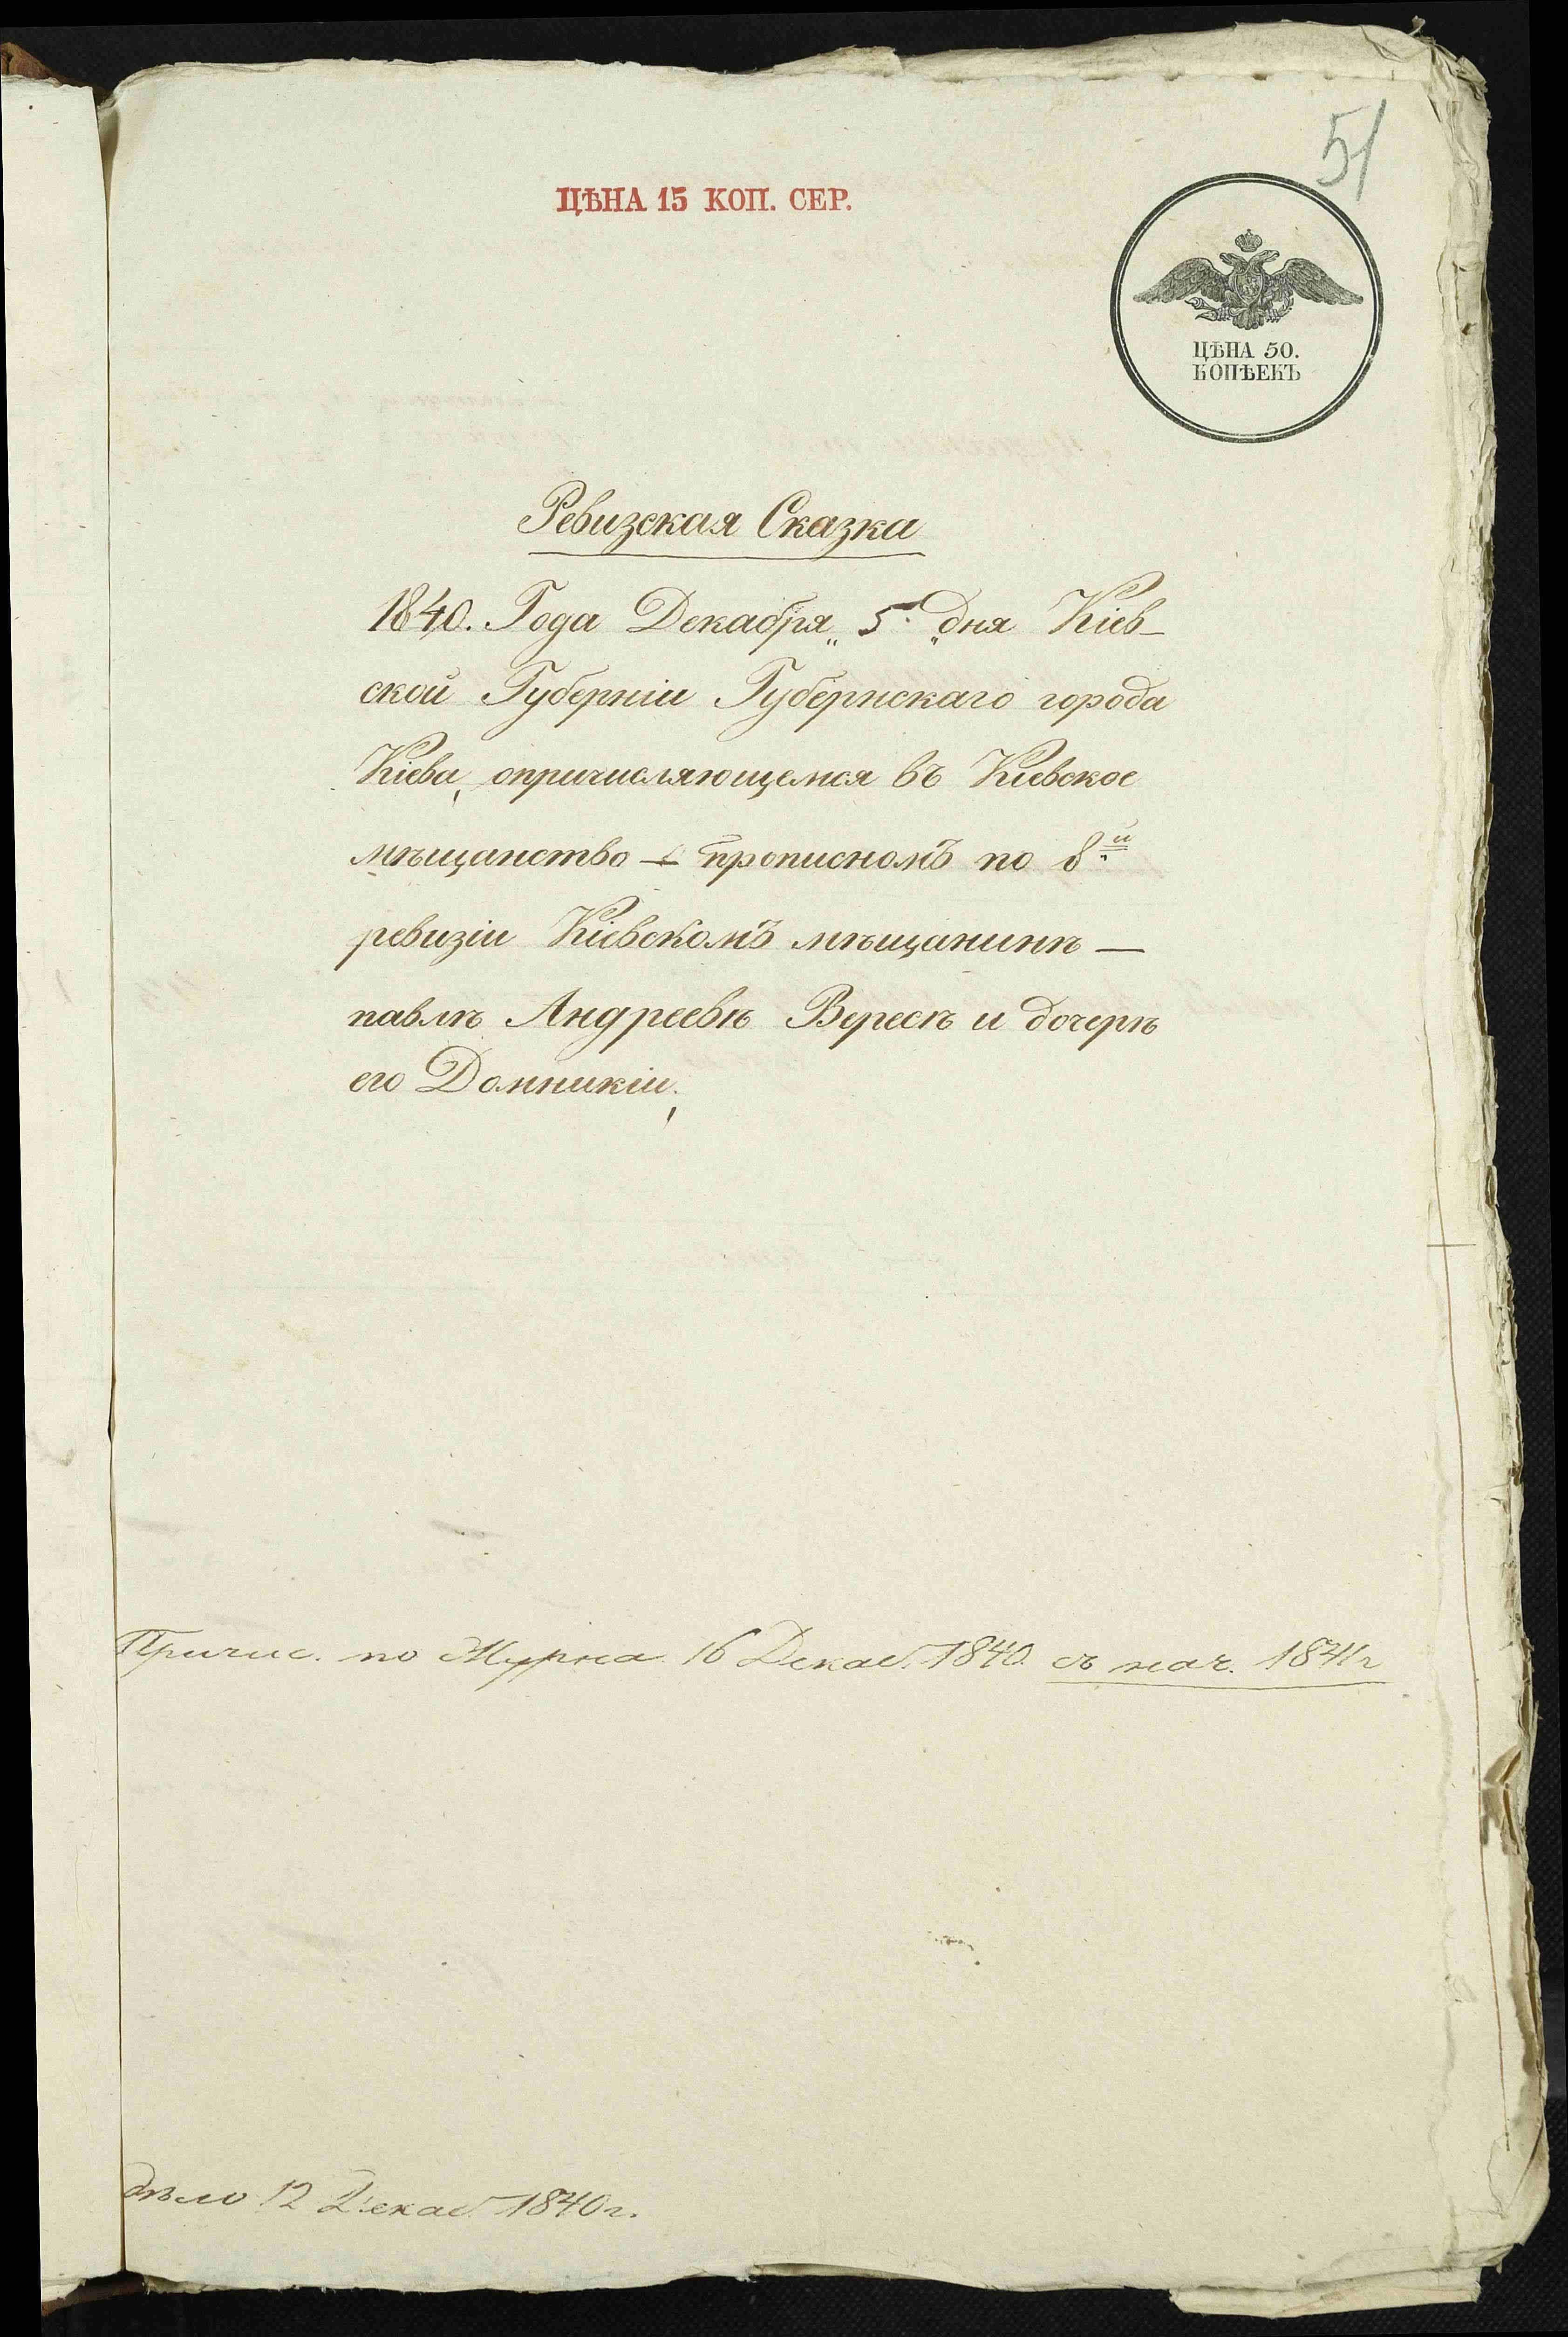 51
ЦѢНА 15 КОП. СЕР.
ЦѢНА 50.
КОПѢЕКЪ
Ревизская Сказка
1840. Года Декабря „5.„ дня Кіев-
ской Губерніи Губернскаго города
Кіева, опричисляющемся въ Кіевское
мѣщанство — прописномъ по 8й
ревизіи Кіевскомъ мѣщанинѣ —
павлѣ Андреевѣ Вересѣ и дочерѣ
его Домникіи,
Причис. по Журна. 16 Декаб. 1840. съ нач. 1841 г
дѣло 12 Декаб. 1840 г.